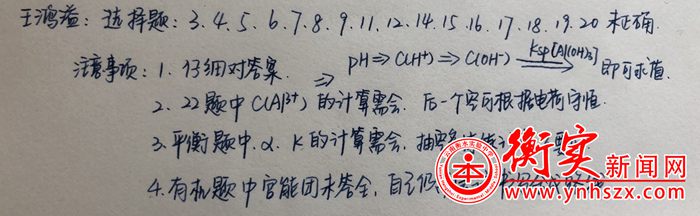 王鸿溢：选择题：3.4.5.6.7.8.9.11.12.14.15.16.17.18.19.20 未正确.
注意事项：1. 仔细对答案. ⇒ pH⇒C(H⁺)⇒C(OH⁻) Ksp[Al(OH)₃]→ 即可求值.
2. 22题中C(Al³⁺)的计算需会. 后一个空可根据电荷守恒.
3. 平衡题中. α. K的计算需会.
4. 有机题中官能团未答全, 自己
衡实新闻网
www.yhshzx.com